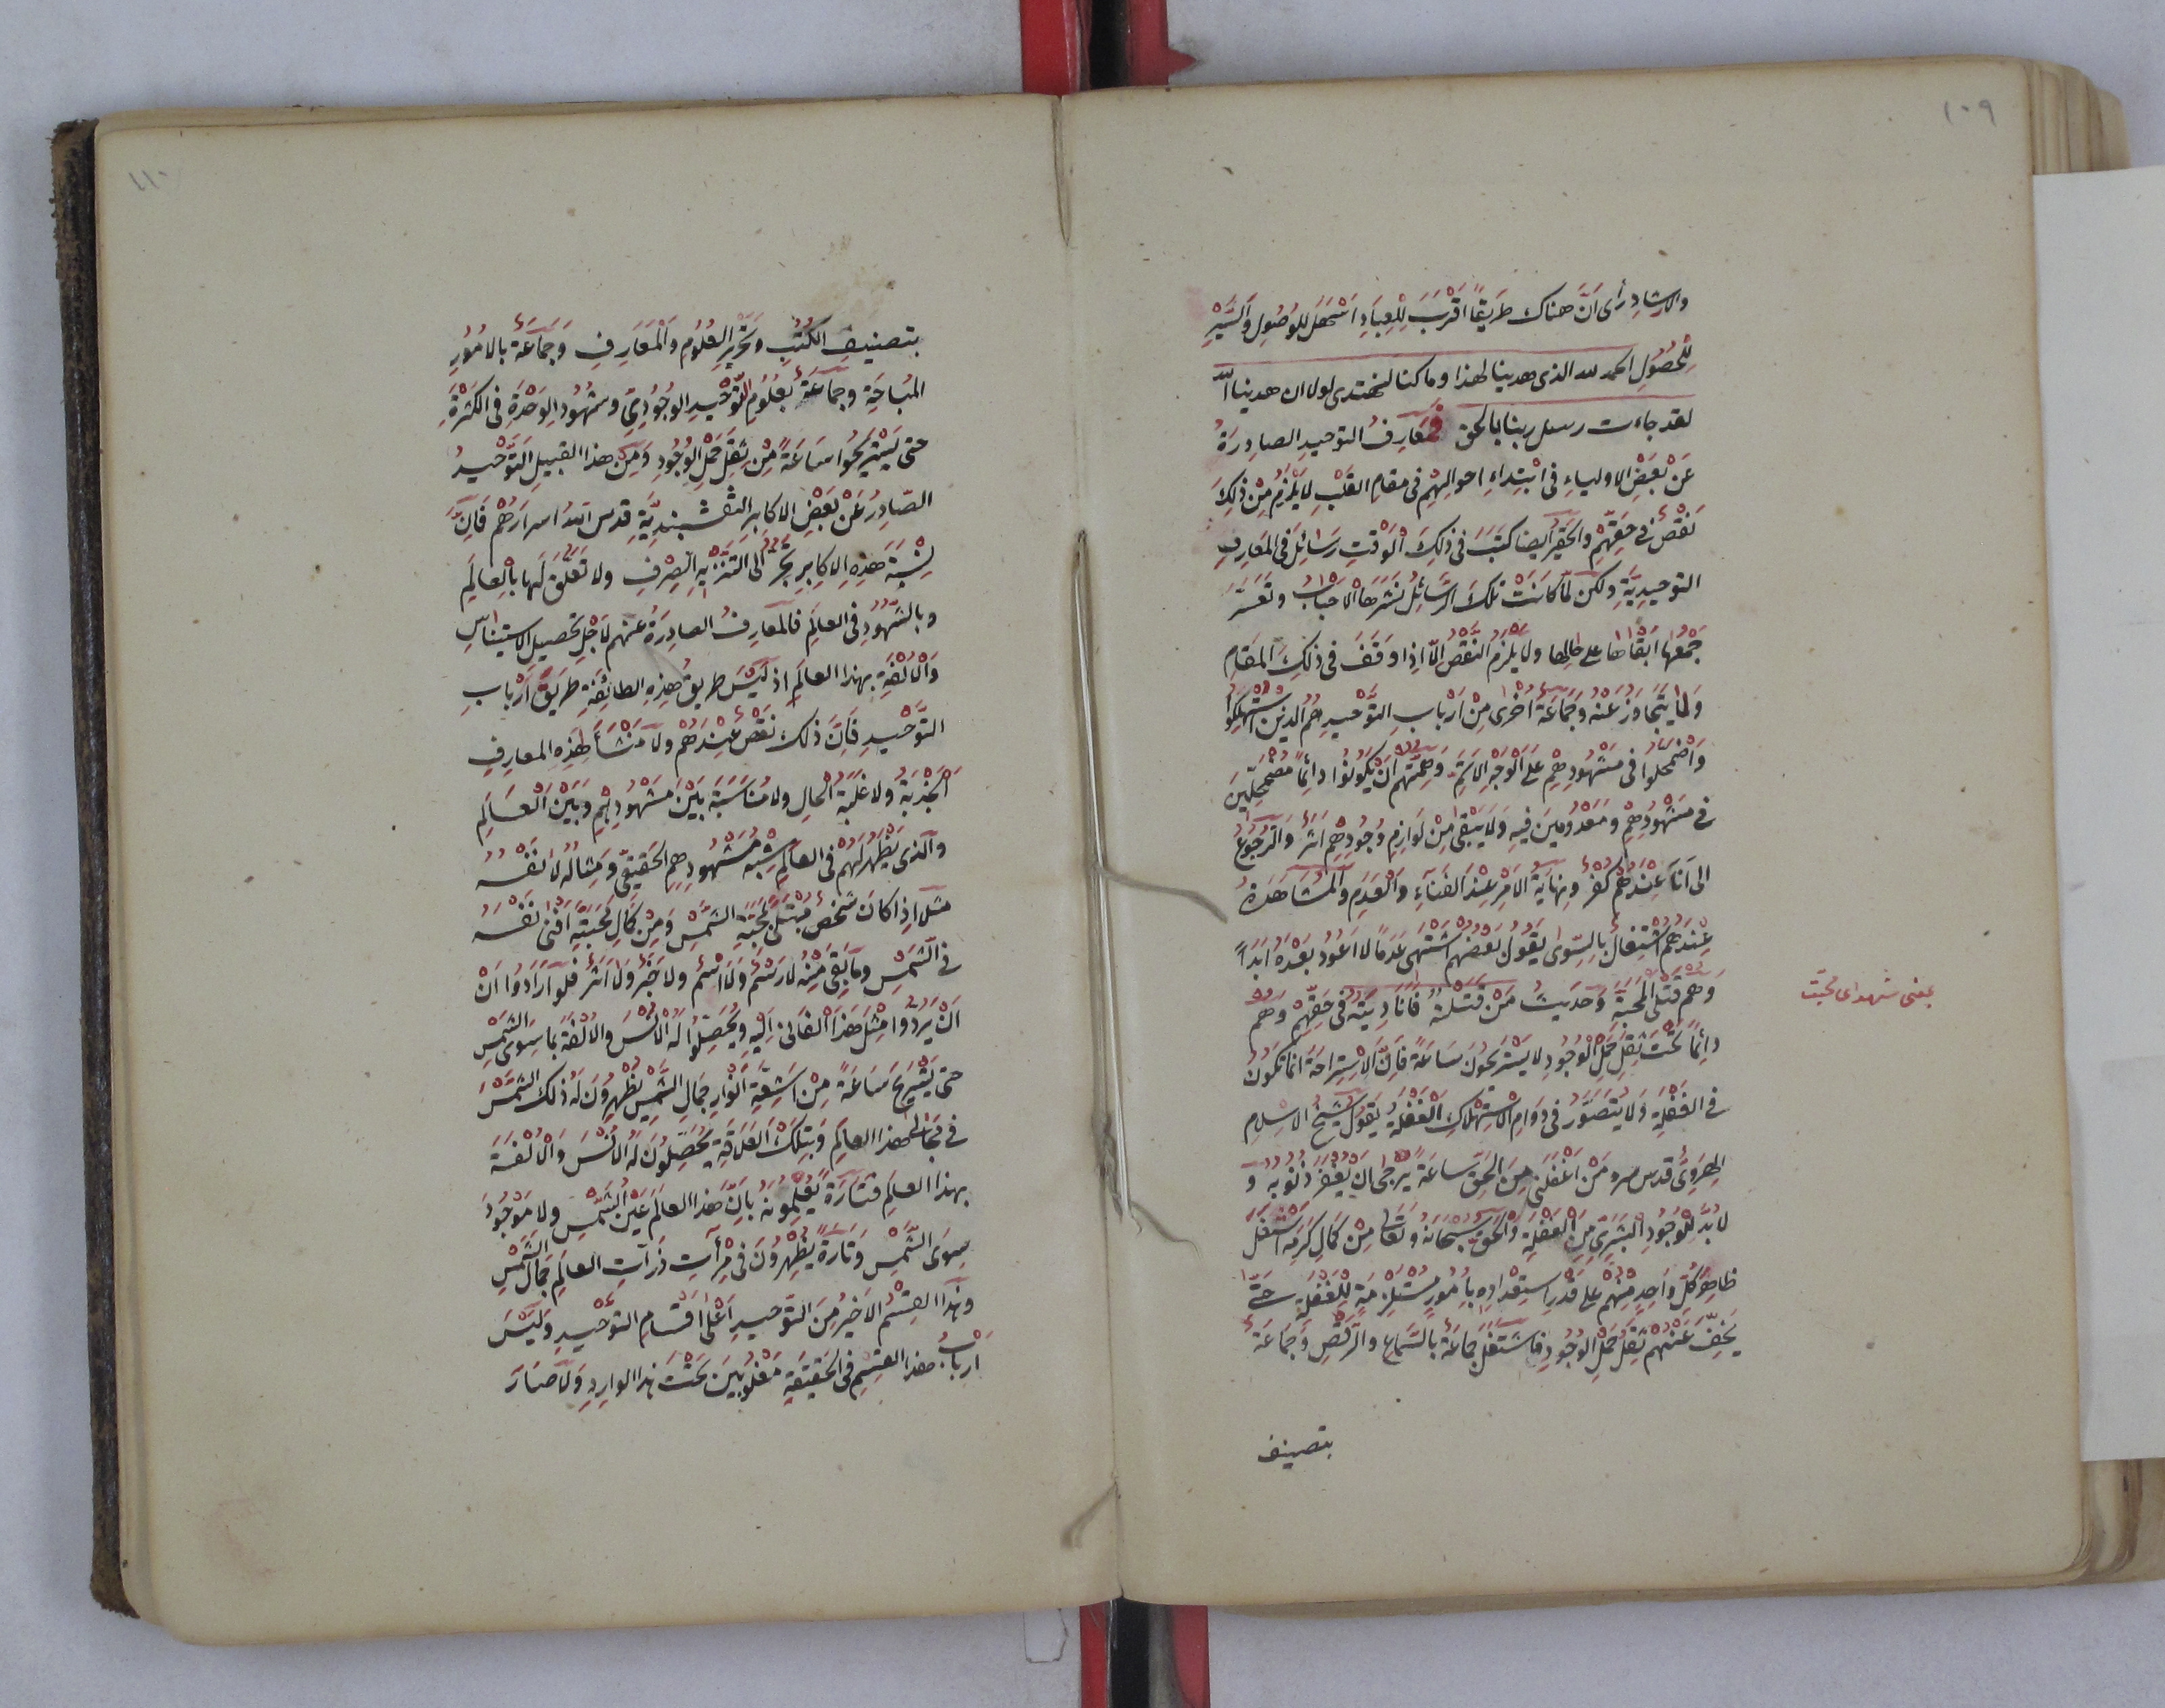 ١٠٩
والارشاد رأى ان هناك طريقا اقرب للعباد اسهل للوصول والسير
للحصول الحمد لله الذى هدينا لهذا وما كنا لنهتدى لولا ان هدينا الله
لقد جاءت رسل ربنا بالحق فمعارف التوحيد الصادرة
عن بعض الاولياء فى ابتداء احوالهم فى مقام القلب لا يلزم من ذلك
نقص فى حقهم والحقير ايضا كتب فى ذلك الوقت رسائل فى المعارف
التوحيدية ولكن لما كانت تلك الرسائل نشرها الاحباب وتعسر
جمعها ابقاها على حالها ولا يلزم النقص الا اذا وقف فى ذلك المقام
ولما يتجاوز عنه وجماعة اخرى من ارباب التوحيد هم الذين استهلكوا
واضمحلوا فى مشهودهم على الوجه الاتم وهمتهم ان يكونوا دائما مضمحلين
فى مشهودهم ومعدومين فيه ولا يبقى من لوازم وجودهم اثر والرجوع
الى انا عندهم كفر ونهاية الامر عند الفناء والعدم والمشاهدة
عندهم اشتغال بالسوى يقول بعضهم اشتهى عدما لا اعود بعده ابدا
وهم قتلى المحبة وحديث من قتلته فانا ديته فى حقهم وهم
دائما تحت ثقل حمل الوجود لا يستريحون ساعة فان الاستراحة انما تكون
فى الغفلة ولا يتصور فى دوام الاستهلاك الغفلة يقول شيخ الاسلام
الهروى قدس سره من اغفلنى من الحق ساعة يرجى ان يغفر ذنوبه و
لا بد للوجود البشرى من الغفلة والحق سبحانه وتعالى من كمال كرمه اشغل
ظاهر كل واحد منهم على قدر استعداده بامور مستلزمة للغفلة حتى
يخف عنهم ثقل حمل الوجود فاشتغل جماعة بالسماع والرقص وجماعة
بتصنيف
يعنى شهداى محبت
١١٠
بتصنيف الكتب وتحرير العلوم والمعارف وجماعة بالامور
المباحة وجماعة بعلوم التوحيد الوجودى وشهود الوحدة فى الكثرة
حتى يستريحوا ساعة من ثقل حمل الوجود ومن هذا القبيل التوحيد
الصادر عن بعض الاكابر النقشبندية قدس الله اسرارهم فان
نسبة هذه الاكابر تجر الى التنزيه الصرف ولا تعلق لها بالعالم
وبالشهود فى العالم فالمعارف الصادرة عنهم لاجل تحصيل الاستيناس
والالفة بهذا العالم اذ ليس طريق هذه الطائفة طريق ارباب
التوحيد فان ذلك نقص عندهم ولا منشأ لهذه المعارف
الجذبة ولا غلبة الحال ولا مناسبة بين مشهودهم وبين العالم
والذى يظهر لهم فى العالم شبه مشهودهم الحقيقى ومثاله لا نفسه
مثلا اذا كان شخص مبتلى لمحبة الشمس ومن كمال محبته افنى نفسه
فى الشمس وما بقى منه لا رسم ولا اسم ولا خبر ولا اثر فلو ارادوا ان
ان يردوا مثل هذا الفانى اليه ويحصلوا له الانس والالفة بما سوى الشمس
حتى يستريح ساعة من اشعة انوار جمال الشمس يظهرون له ذلك الشمس
فى مجالى هذا العالم وبتلك العلاقة يحصلون له الانس والالفة
بهذا العالم فتارة يعلمونه بان هذا العالم عين الشمس ولا موجود
سوى الشمس وتارة يظهرون فى مرآت ذرآت العالم جمال الشمس
وهذا القسم الاخير من التوحيد اعلى اقسام التوحيد وليس
ارباب هذا القسم فى الحقيقة مغلوبين تحت هذا الوارد ولا صار